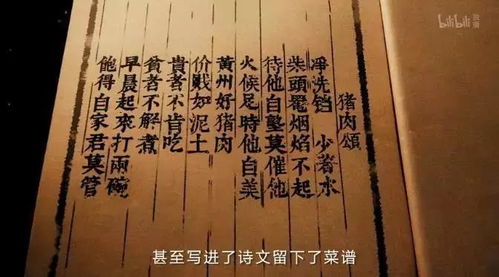 bilibili
猪肉頌
凈洗铛 少著水
柴頭罨烟焰不起
待他自熟莫催他
火候足時他自美
黃州好猪肉
价贱如泥土
貴者不肯吃
貧者不解煮
早晨起來打兩碗
飽得自家君莫管
甚至写进了诗文留下了菜谱